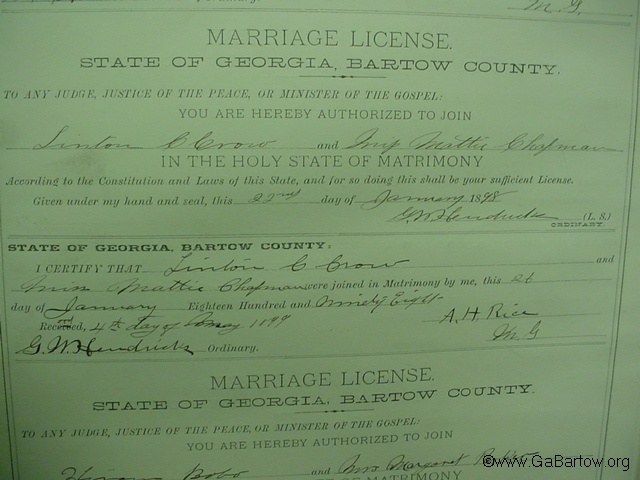 M. G.
MARRIAGE LICENSE.
STATE OF GEORGIA, BARTOW COUNTY.
TO ANY JUDGE, JUSTICE OF THE PEACE, OR MINISTER OF THE GOSPEL:
YOU ARE HEREBY AUTHORIZED TO JOIN
Linton C Crow and Miss Mattie Chapman
IN THE HOLY STATE OF MATRIMONY
According to the Constitution and Laws of this State, and for so doing this shall be your sufficient License.
Given under my hand and seal, this 22nd day of January 1898
G.W. Hendricks (L. S.)
ORDINARY.
STATE OF GEORGIA, BARTOW COUNTY:
I CERTIFY THAT Linton C Crow and
Miss Mattie Chapman were joined in Matrimony by me, this 26
day of January Eighteen Hundred and Ninety Eight
A. H. Rice
Recorded, 4th day of May 1899
M. G
G. W. Hendricks Ordinary.
MARRIAGE LICENSE.
STATE OF GEORGIA, BARTOW COUNTY.
TO ANY JUDGE, JUSTICE OF THE PEACE, OR MINISTER OF THE GOSPEL:
YOU ARE HEREBY AUTHORIZED TO JOIN
Bobo and Mrs Margaret
©www.GaBartow.org